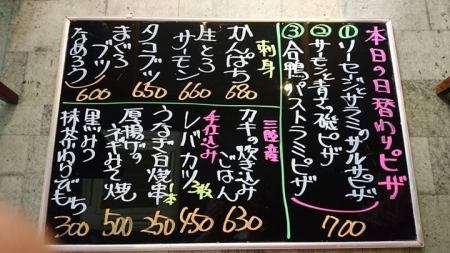 本日の日替わりピザ
①ソーセージとサラミのサルサピザ
②サーモンと青さの磯ピザ
③合鴨のパストラミピザ
700
刺身
かんぱち 680
生とろサーモン 660
タコブツ 650
まぐろブツ
なめろう 600
三陸産
カキの炊き込みごはん 630
手仕込み
レバカツ 3枚 450
うなぎ白焼串 1本 250
厚揚げのネギみそ焼 500
黒みつ抹茶わらびもち 300